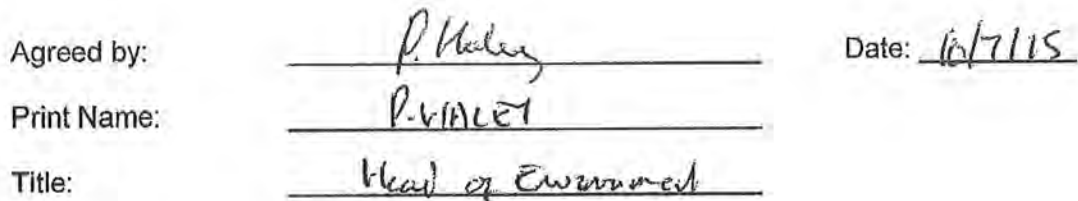 Agreed by: P. Haley Date: 10/7/15
Print Name: P. HALEY
Title: Head of Environment